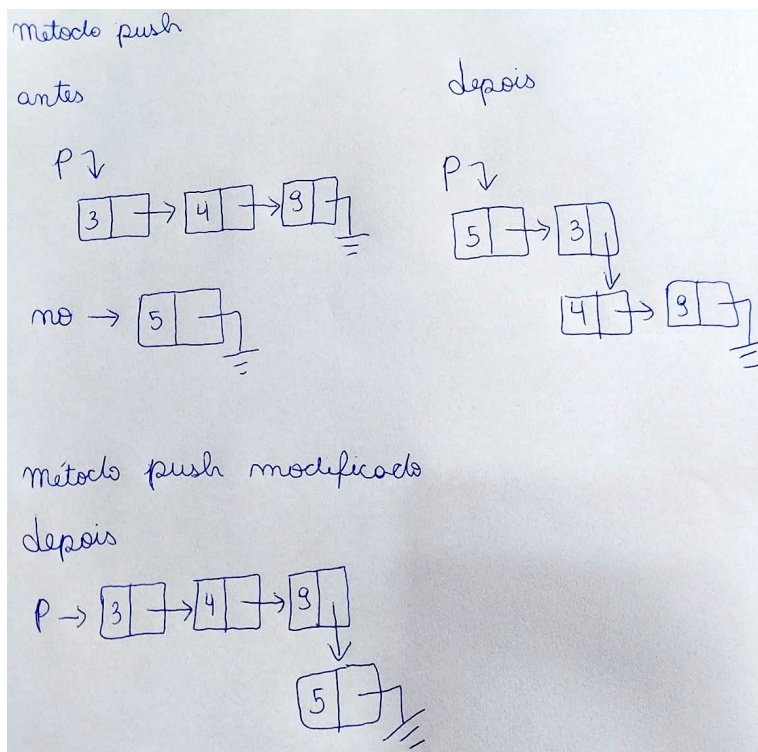 metodo push
antes
P
3 4 9
no → 5
depois
P
5 3
4 9
método push modificado
depois
P → 3 4 9
5